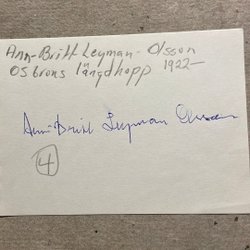 Ann-Britt Leyman-Olsson
OS brons längdhopp 1922-
Ann-Britt Leyman Olsson
4